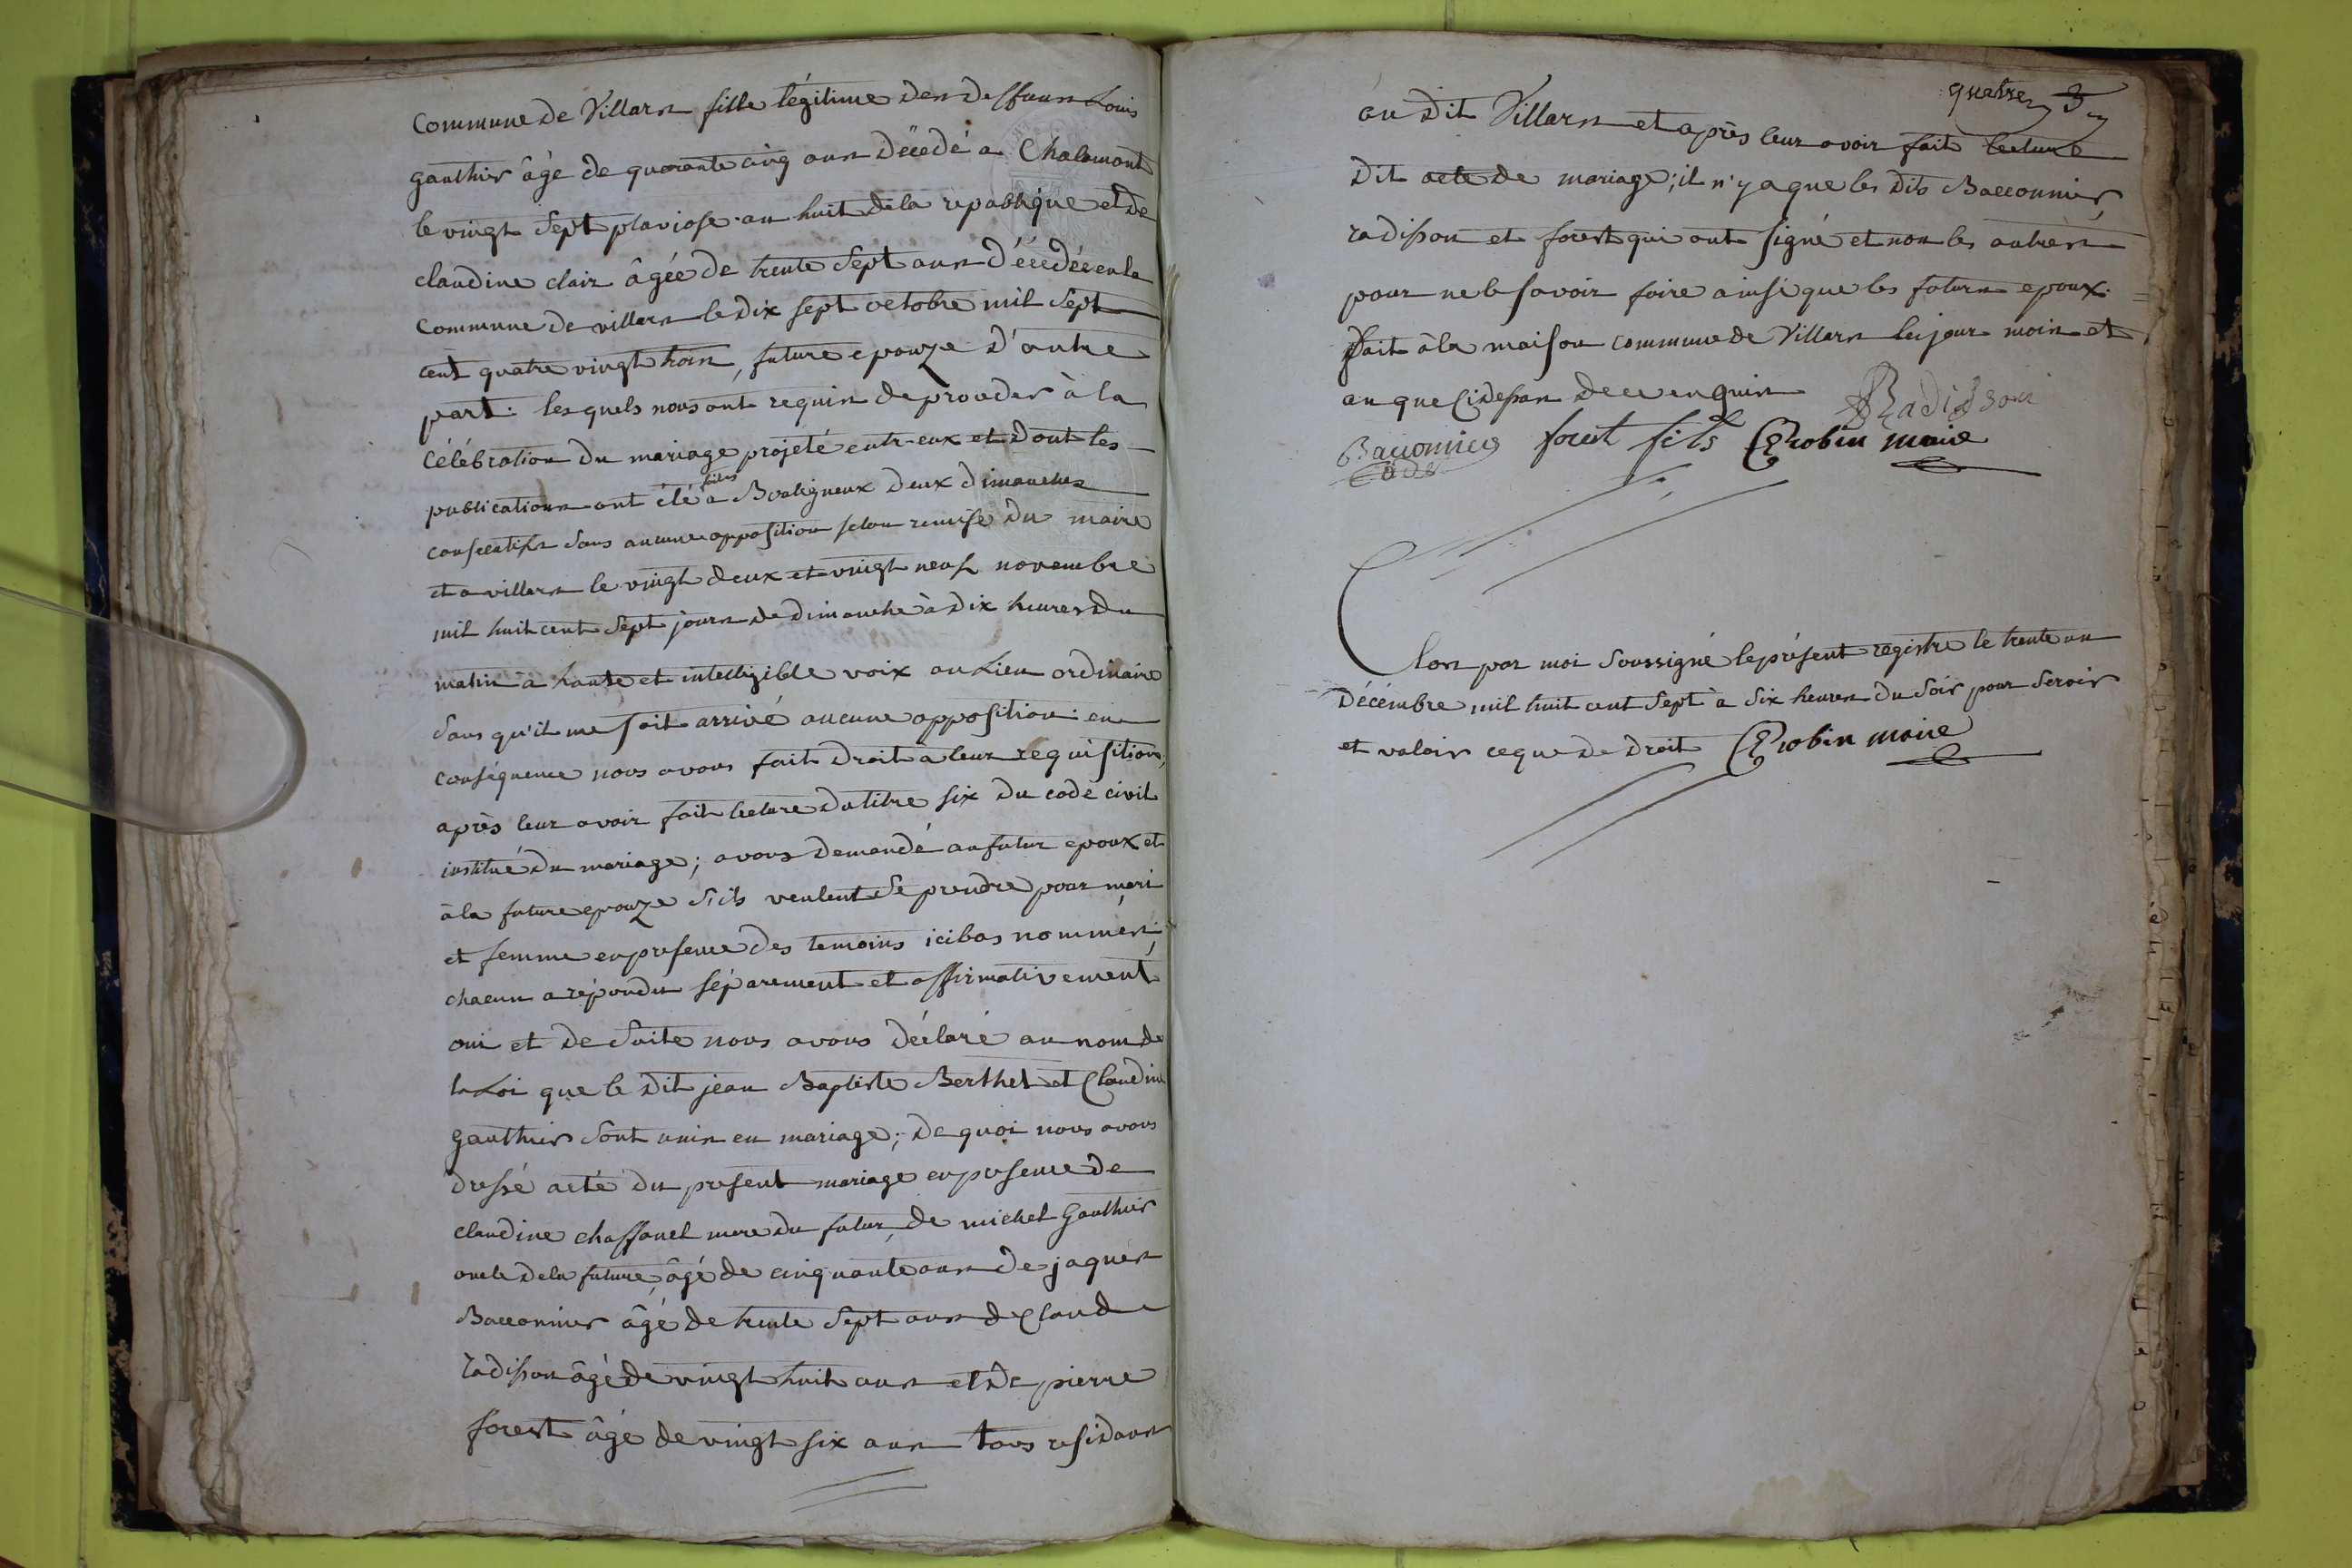 commune de Villars fille légitime des deffuns Louis
gauthier âgé de quarante cinq ans décédé a Chalamont
le vingt Sept pluviose an huit de la republique et de
claudine clair âgée de trente Sept ans décédée en la
commune de villars le dix sept octobre mil Sept
cent quatre vingt trois, future epouze d'autre
part. les quels nous ont requis de proceder à la
célébration du mariage projeté entr-eux et dont les
publications ont été faites a Bouligneux deux dimanches
consecutifs sans aucune opposition selon remise du maire
et a villars le vingt deux et vingt neuf novembre
mil huit cent Sept jours de dimanche à dix heures du
matin a haute et intelligible voix au Lieu ordinaire
Sans qu'il me soit arrivé aucune opposition: en
conséquence nous avons fait droit a leur requisition;
après leur avoir fait lecture du titre six du code civil
institué du mariage; avons demandé au futur epoux et
à la future epouze S'ils veulent Se prendre pour mari
et femme en presence des temoins ici bas nommés;
chacun a répondu séparement et affirmativement
oui et de Suite nous avons déclaré au nom de
la Loi que le dit jean Baptiste Berthet et Claudine
gauthier Sont unis en mariage; de quoi nous avons
dressé acte du present mariage en presence de
claudine chaffanel mere du futur, de michel Gauthier
oncle de la future, âgé de cinquante ans de jaques
Bacconnier âgé de trente Sept ans de Claude
radisson âgé de vingt huit ans et de pierre
forest âgé de vingt six ans tous residans
quatre
au dit Villars et après leur avoir fait lecture
dit acte de mariage; il n'y a que les dits Bacconnier,
radisson et forest qui ont signé et non les autres
pour ne le savoir faire ainsi que les futurs epoux.
fait à la maison commune de Villars les jour mois et
an que Cidessus
Radisson
Bacconnier forest fils Robin maire
Clos par moi Soussigné le présent registre le trente un
Décémbre mil huit cent Sept à Six heures du Soir pour Servir
et valoir ce que de droit Robin maire